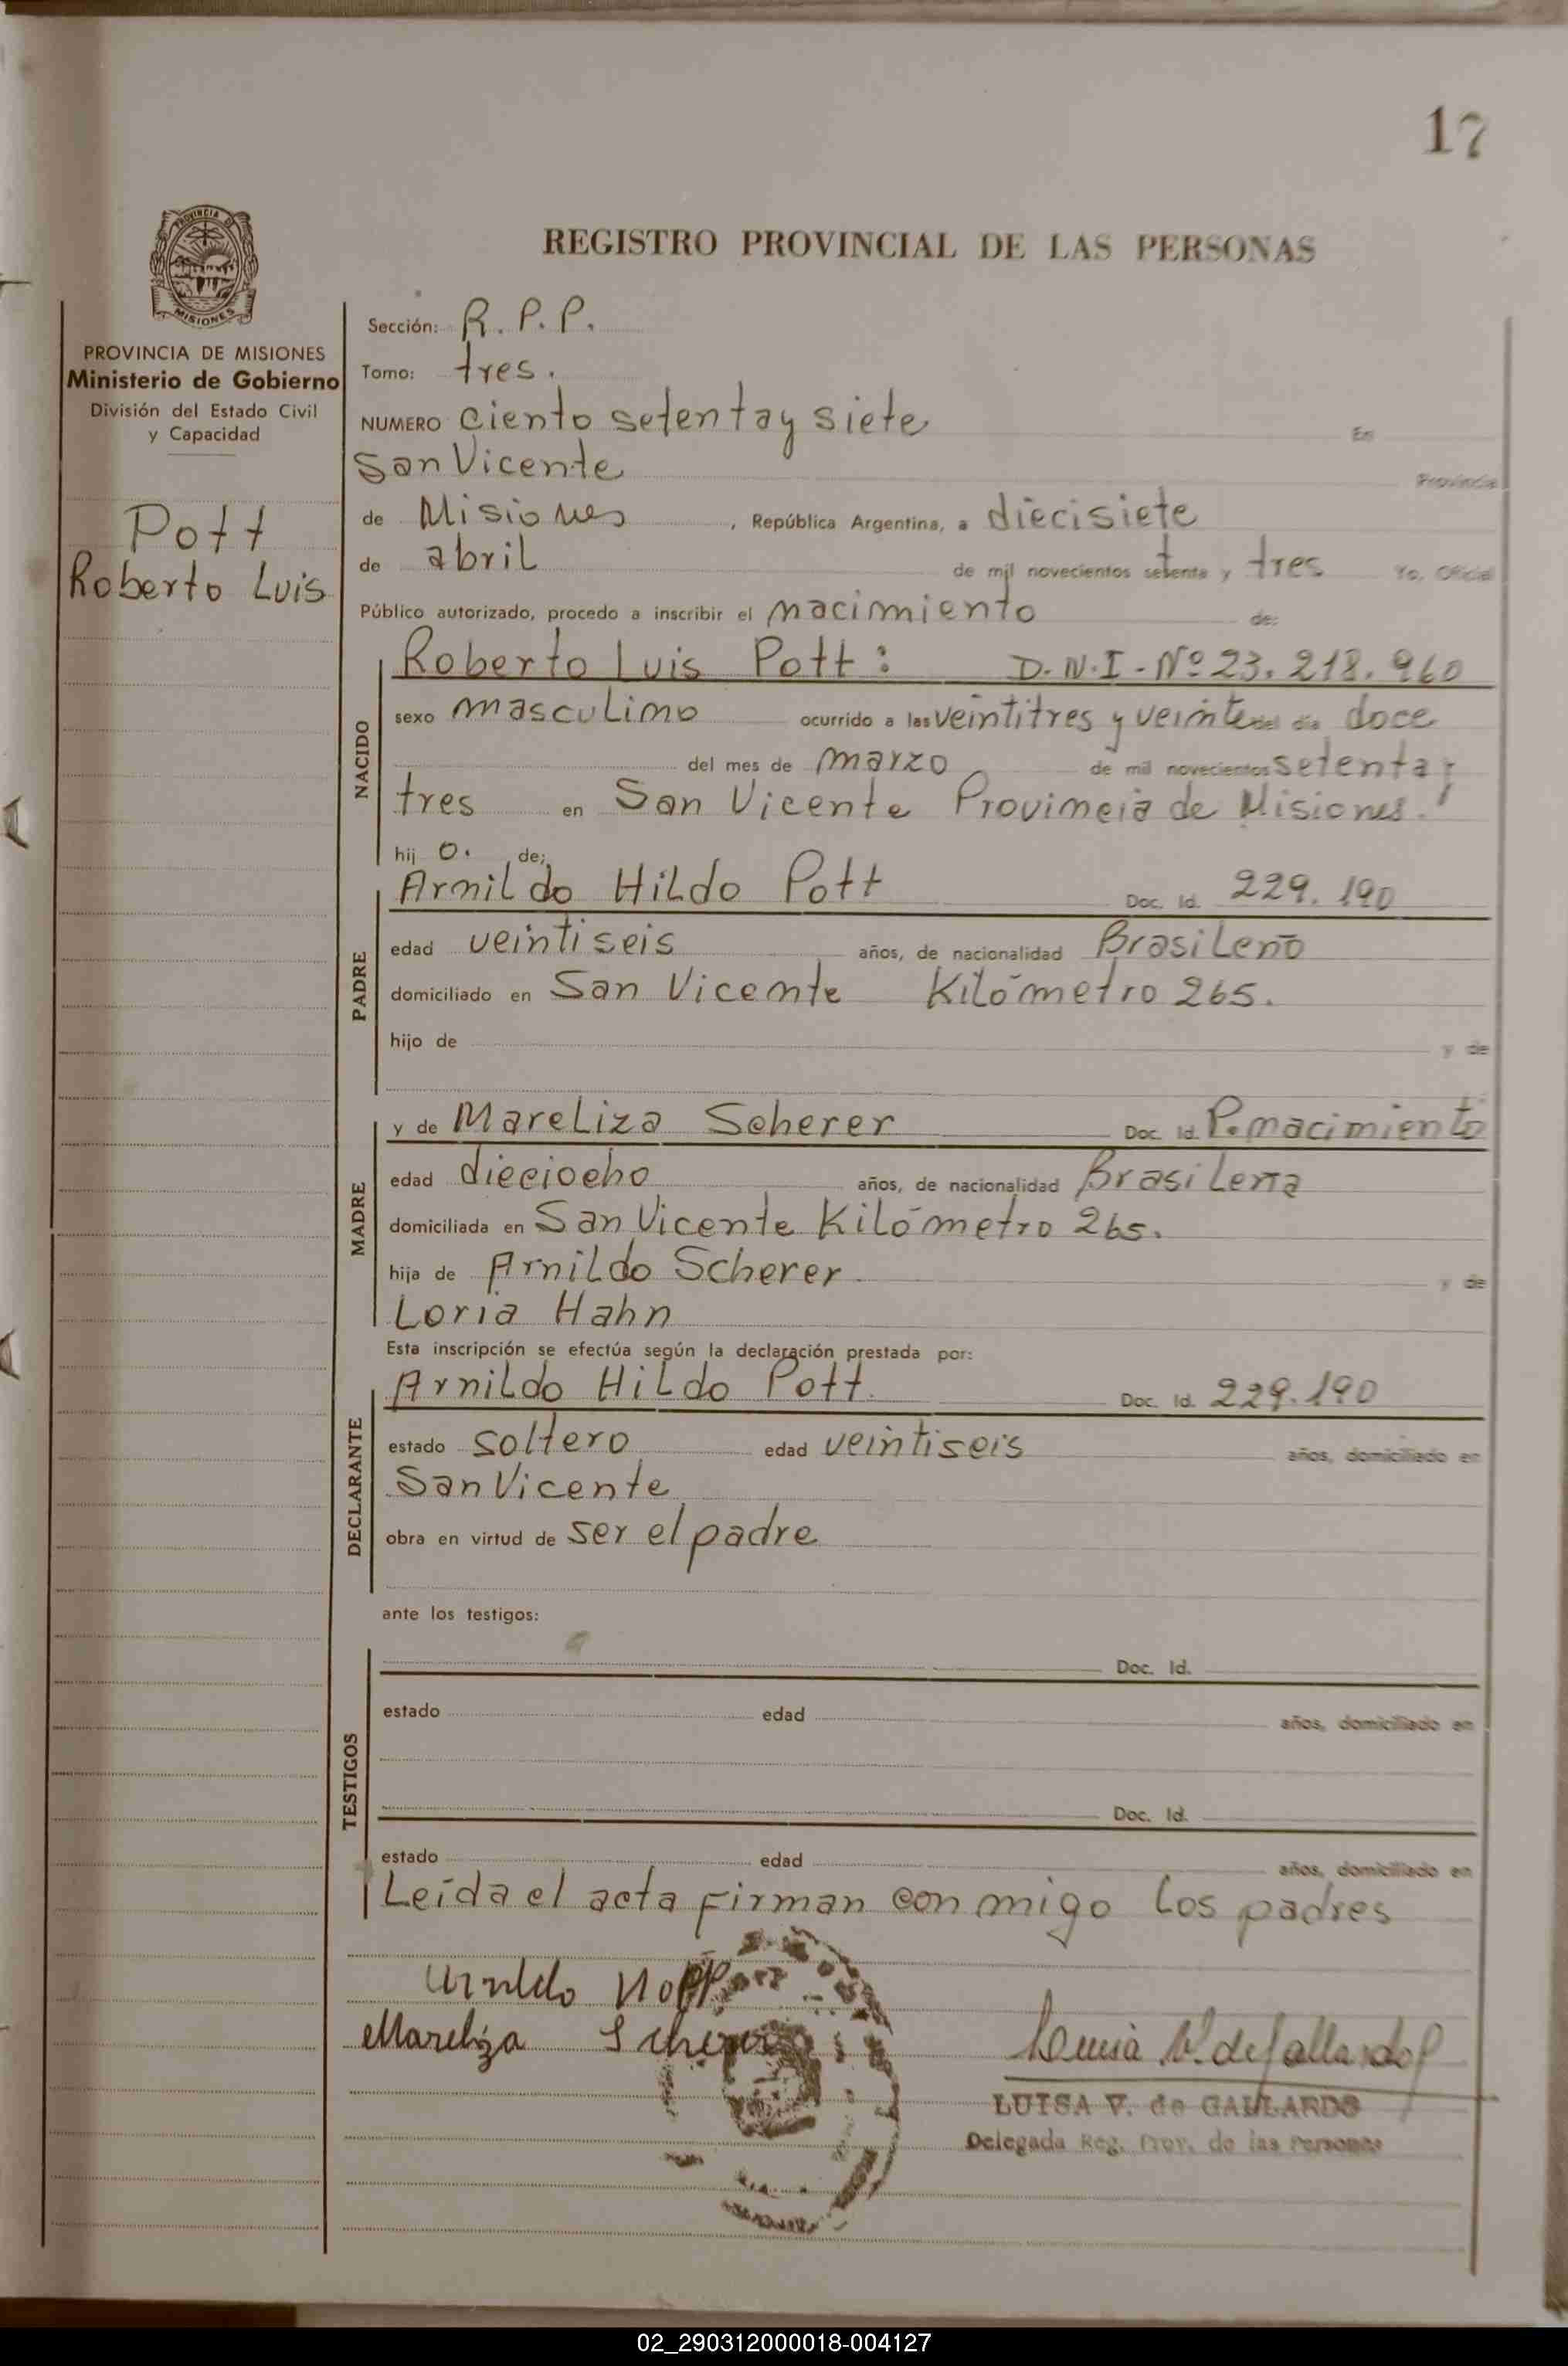 17
REGISTRO PROVINCIAL DE LAS PERSONAS
PROVINCIA DE MISIONES
PROVINCIA DE MISIONES
Ministerio de Gobierno
División del Estado Civil
y Capacidad
Pott
Roberto Luis
Sección: R. P. P.
Tomo: tres.
NUMERO ciento setenta y siete En
San Vicente Provincia
de Misiones, República Argentina, a diecisiete
de abril de mil novecientos setenta y tres Yo, Oficial
Público autorizado, procedo a inscribir el nacimiento de:
NACIDO
Roberto Luis Pott: D.N.I - Nº 23.218.960
sexo masculino ocurrido a las veintitres y veinte del día doce
del mes de marzo de mil novecientos setenta y
tres en San Vicente Provincia de Misiones.
hij o. de;
PADRE
Arnildo Hildo Pott Doc. Id. 229.190
edad veintiseis años, de nacionalidad Brasileño
domiciliado en San Vicente Kilómetro 265.
hijo de y de
MADRE
y de Mareliza Scherer Doc. Id. P. nacimiento
edad dieciocho años, de nacionalidad Brasileña
domiciliada en San Vicente Kilómetro 265.
hija de Arnildo Scherer y de
Loria Hahn
Esta inscripción se efectúa según la declaración prestada por:
DECLARANTE
Arnildo Hildo Pott. Doc. Id. 229.190
estado soltero edad veintiseis años, domiciliado en
San Vicente
obra en virtud de ser el padre
ante los testigos:
TESTIGOS
Doc. Id.
estado edad años, domiciliado en
Doc. Id.
estado edad años, domiciliado en
Leída el acta firman conmigo los padres
Mareliza Scherer
Luisa V. de Gallardo
LUISA V. de GALLARDO
Delegada Reg. Prov. de las Personas
02_290312000018-004127